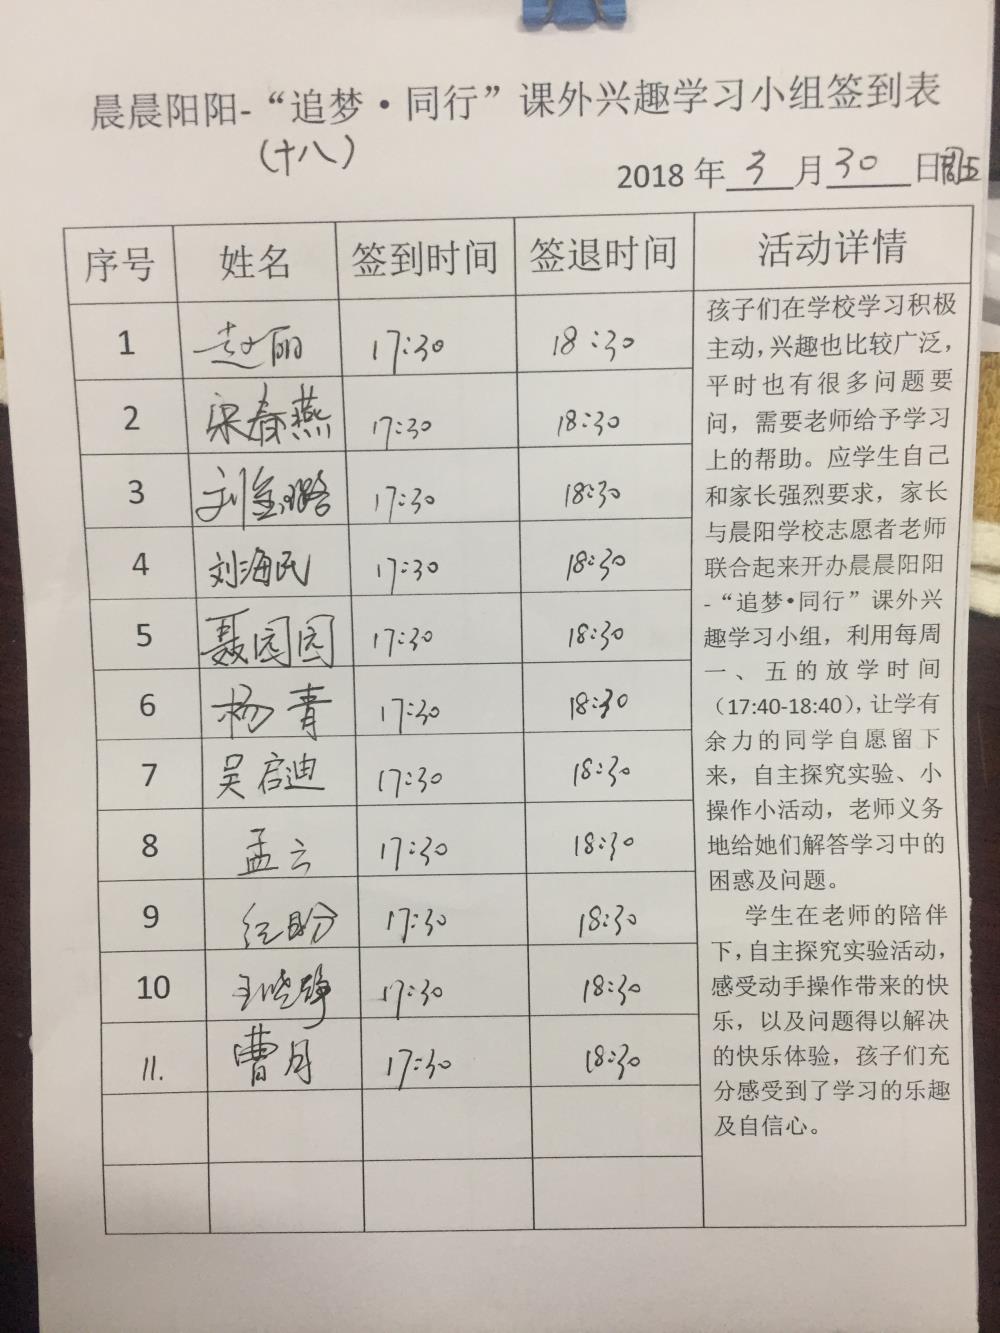 晨晨阳阳-“追梦·同行”课外兴趣学习小组签到表
（十八）
2018 年 3 月 30 日周五
序号 姓名 签到时间 签退时间 活动详情
1 赵丽 17:30 18:30
2 宋春燕 17:30 18:30
3 刘金璐 17:30 18:30
4 刘海民 17:30 18:30
5 聂园园 17:30 18:30
6 杨青 17:30 18:30
7 吴启迪 17:30 18:30
8 孟云 17:30 18:30
9 17:30 18:30
10 王晓静 17:30 18:30
11. 曹月 17:30 18:30
孩子们在学校学习积极
主动，兴趣也比较广泛，
平时也有很多问题要
问，需要老师给予学习
上的帮助。应学生自己
和家长强烈要求，家长
与晨阳学校志愿者老师
联合起来开办晨晨阳阳
-“追梦•同行”课外兴
趣学习小组，利用每周
一、五的放学时间
（17:40-18:40），让学有
余力的同学自愿留下
来，自主探究实验、小
操作小活动，老师义务
地给她们解答学习中的
困惑及问题。
学生在老师的陪伴
下，自主探究实验活动，
感受动手操作带来的快
乐，以及问题得以解决
的快乐体验，孩子们充
分感受到了学习的乐趣
及自信心。